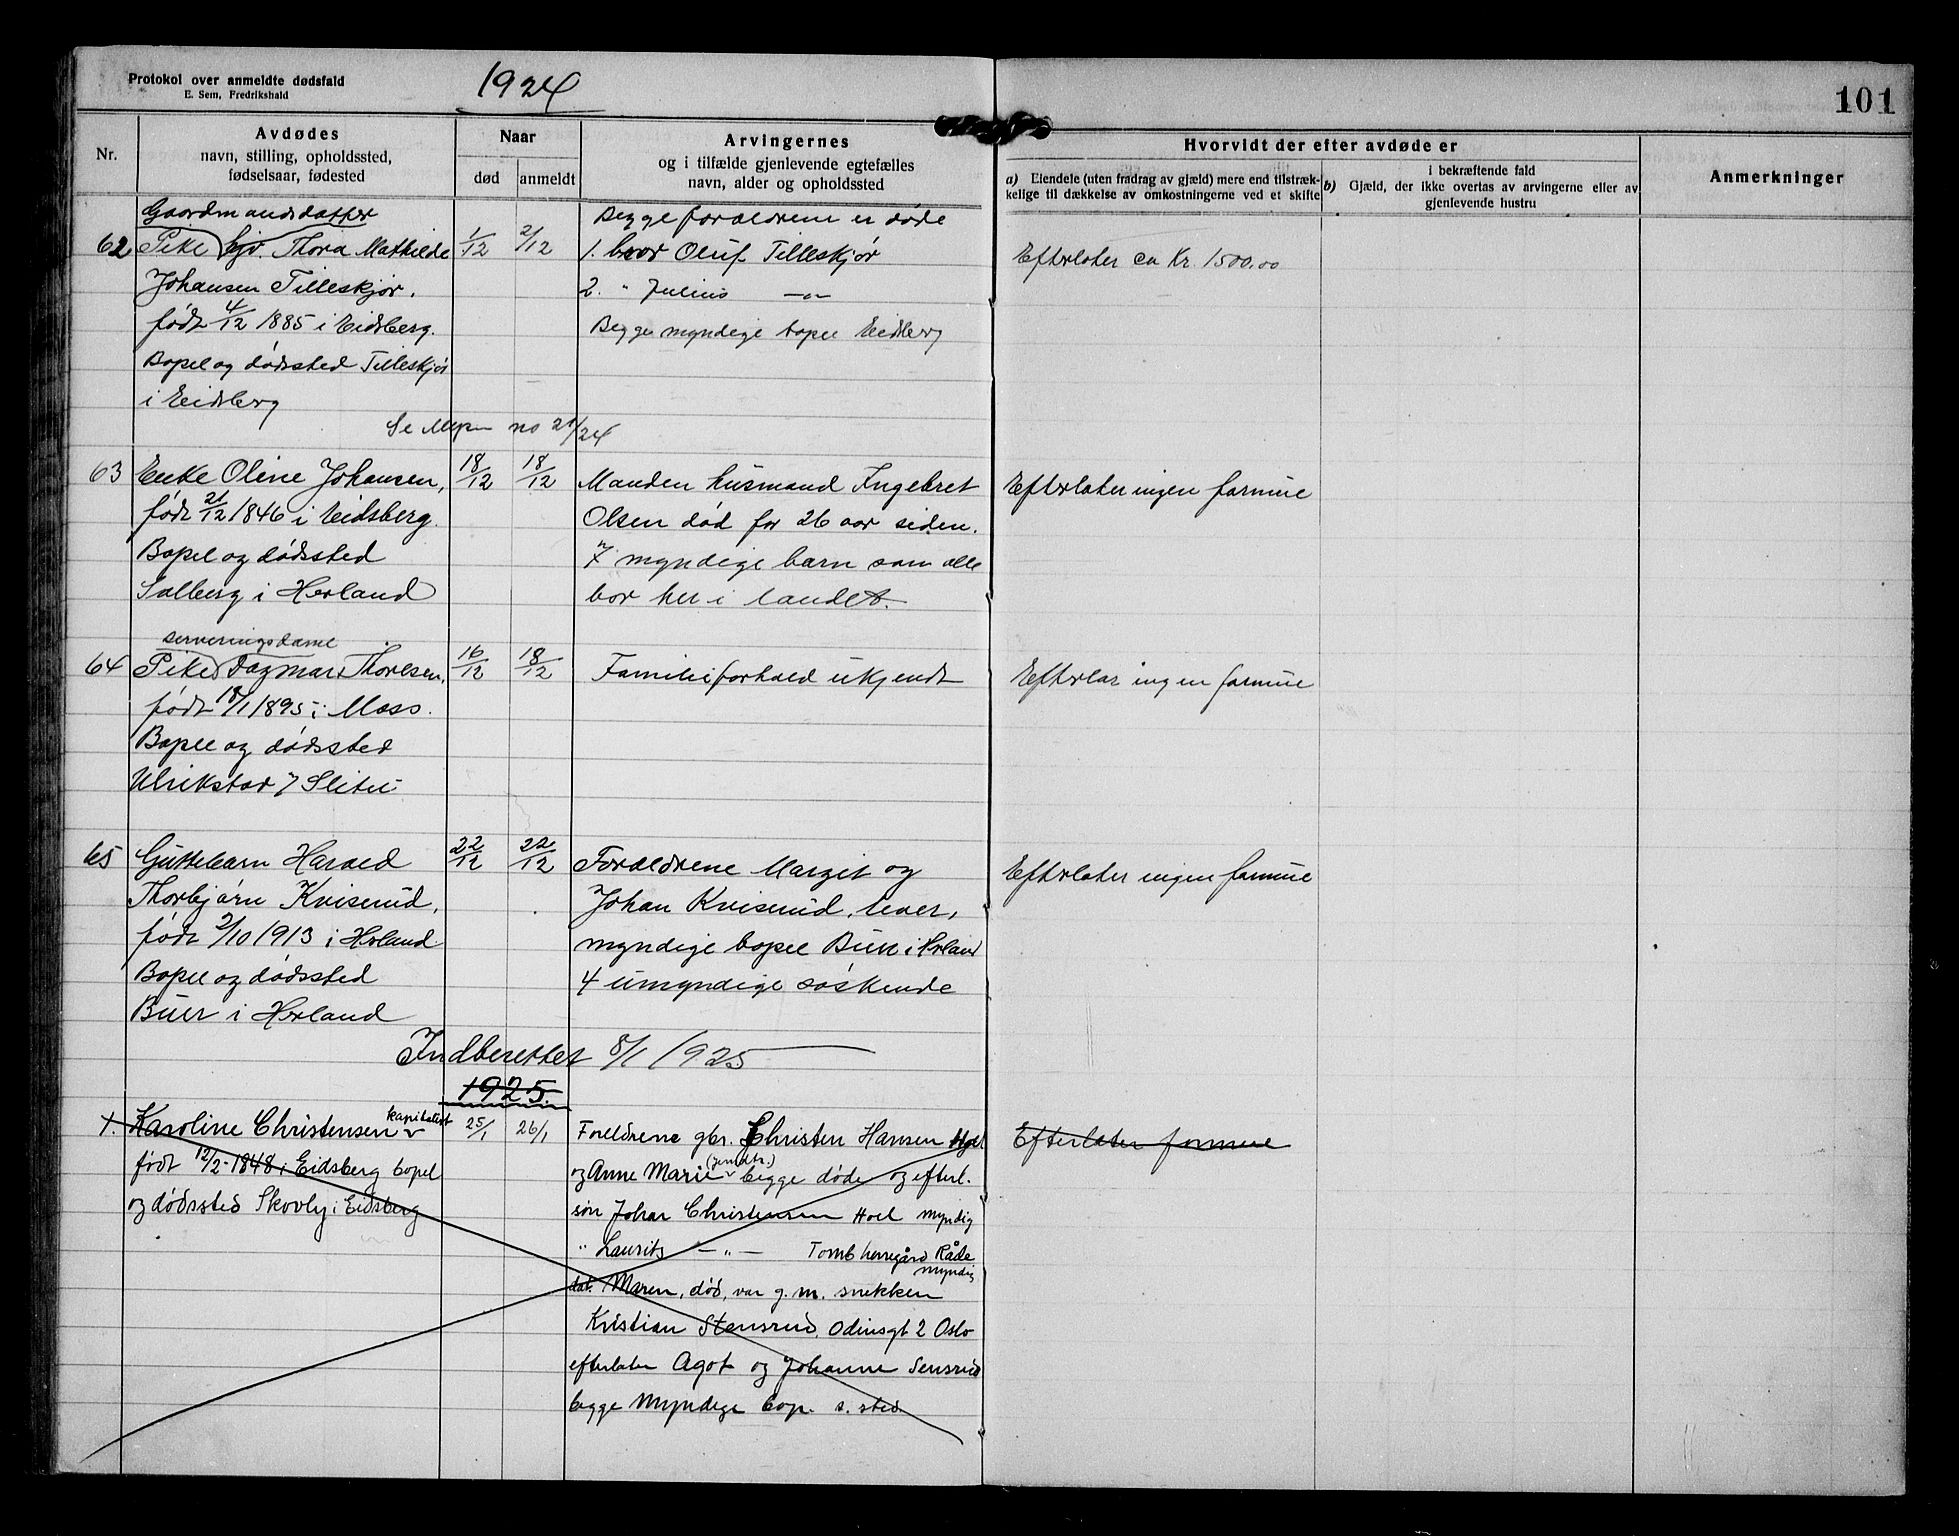 Protokol over anmeldte dødsfald
E. Sem, Fredrikshald
1924
101
Nr.
Avdødes
navn, stilling, opholdssted,
fødselsaar, fødested
Naar
død
anmeldt
Arvingernes
og i tilfælde gjenlevende egtefælles
navn, alder og opholdssted
Hvorvidt der efter avdøde er
a) Eiendele (uten fradrag av gjæld) mere end tilstræk-
kelige til dækkelse av omkostningerne ved et skifte
i bekræftende fald
b) Gjæld, der ikke overtas av arvingerne eller av
gjenlevende hustru
Anmerkninger
Gaardmandsdatter
62 Pike Thora Mathilde
Johansen Tilleskjør.
født 4/12 1885 i Eidsberg.
Bopel og dødssted Tilleskjør
i Eidsberg
1/12
2/12
Begge forældrene er døde
1. bror Oluf Tilleskjør
2. " Julius —"—
Begge myndige bopel Eidsberg
Efterlater ca Kr. 1500.00
Se Mepn no 21/24
63 Enke Oline Johansen,
født 21/12 1846 i Eidsberg.
Bopel og dødssted
Solberg i Herland
18/12
18/12
Manden husmand Ingebret
Olsen død for 26 aar siden.
7 myndige barn som alle
bor her i landet.
Efterlater ingen formue
serveringsdame
64 Pike Dagmar Thoresen,
født 18/1 1895 i Moss.
Bopel og dødssted
Ulrikstad i Slitu
16/12
18/12
Familieforhold ukjendt
Efterlar ingen formue
65 Guttebarn Harald
Thorbjørn Kviserud,
født 2/10 1913 i Herland
Bopel og dødssted
Buer i Herland
22/12
22/12
Forældrene Margit og
Johan Kviserud, lever,
myndige bopel Buer i Herland
4 umyndige søskende
Efterlater ingen formue
Indberettet 8/1 1925
1925.
1. Karoline Christensen kapitalist
født 12/2-1848 i Eidsberg bopel
og dødssted Skovly i Eidsberg
25/1
26/1
Foreldrene gbr. Christen Hansen Hoel
og Anne Marie begge døde og efterl.
søn Johan Christensen Hoel myndig
" Laurits —"— Tomb herregård Råde
myndig
dat. Maren, død, var g. m. snekker
Kristian Stensrud, Odinsgt 2 Oslo
efterlater Agot og Johanne Sensrud
begge Myndige bop. s. sted.
Efterlater formue